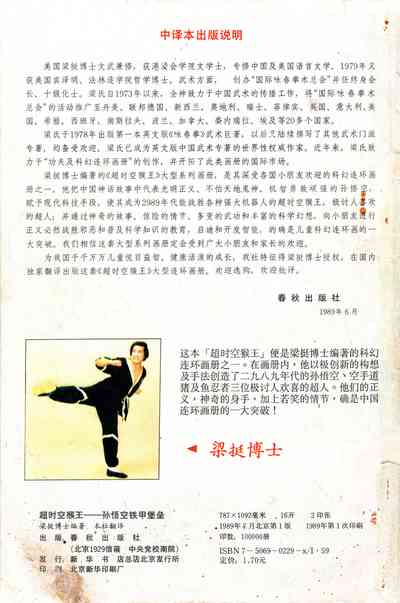 中译本出版说明
美国梁挺博士文武兼修，获港浸会学院文学士，专修中国及美国语言文学、1979年又
获美国宾泽明、法林达学院哲学博士。武术方面， 创办“国际咏春拳术总会”并任终身会
长、十级化士。梁氏自1973年以来，全神致力于中国武术的传播工作，将“国际咏春拳术
总会”的活动推广至丹麦、联邦德国、新西兰、奥地利、瑞士、菲律宾、英国、意大利、美
国、希腊、西班牙、南斯拉夫、波兰、加拿大、委内瑞拉、埃及等20多个国家。
梁氏于1978年出版第一本英文版《咏春拳》武术巨著，以后又陆续撰写了其他武术门派
专著，均备受欢迎。梁氏已成为英文版中国武术专著的世界性权威作家。近年来，梁氏致
力于“功夫及科幻连环画册”的创作，并开拓了此类画册的国际市场。
梁挺博士编著的《超时空猴王》大型系列画册，是其深受各国小朋友欢迎的科幻连环画
册之一。他把中国神话故事中代表光明正义、不怕天地鬼神、机智勇敢顽强的孙悟空，
赋予现代科技手段，使其成为2989年代能战胜各种强大机器人的超时空猴王。
的超人；并通过神奇的故事，惊险的情节、多变的武功和丰富的科学幻想，向小朋友进行
正义必然战胜邪恶和普及科学知识的教育，启迪和开发智能，的确是儿童科幻连环画的一
大突破。我们相信这套大型系列画册定会受到广大小朋友和家长的欢迎。
为我国千千万万儿童悦目益智、健康活泼的成长，我社特征得梁挺博士授权，在国内
独家翻译出版这套《超时空猴王》大型连环画册。欢迎选购，欢迎批评。
春秋出版社
1989年6月
这本「超时空猴王」便是梁挺博士编著的科幻
连环画册之一。在画册内，他以极创新的构想
及手法创造了二九八九年代的孙悟空、空手道
猪及鱼忍者三位极讨人欢喜的超人。他们的正
义，神奇的身手，加上若笑的情节，确是中国
连环画册的一大突破！
梁挺博士
超时空猴王——孙悟空铁甲堡垒
梁挺博士编著 本社翻译
出版 春秋出版社
（北京1929信箱 中央党校南院）
发行：新华书店总店北京发行所
印刷：北京新华印刷厂
787×1092毫米 16开 2印张
1989年6月北京第1版 1989年第1次印刷
印数：100000册
ISBN7－5069－0229－x/I·59
定价：1.70元